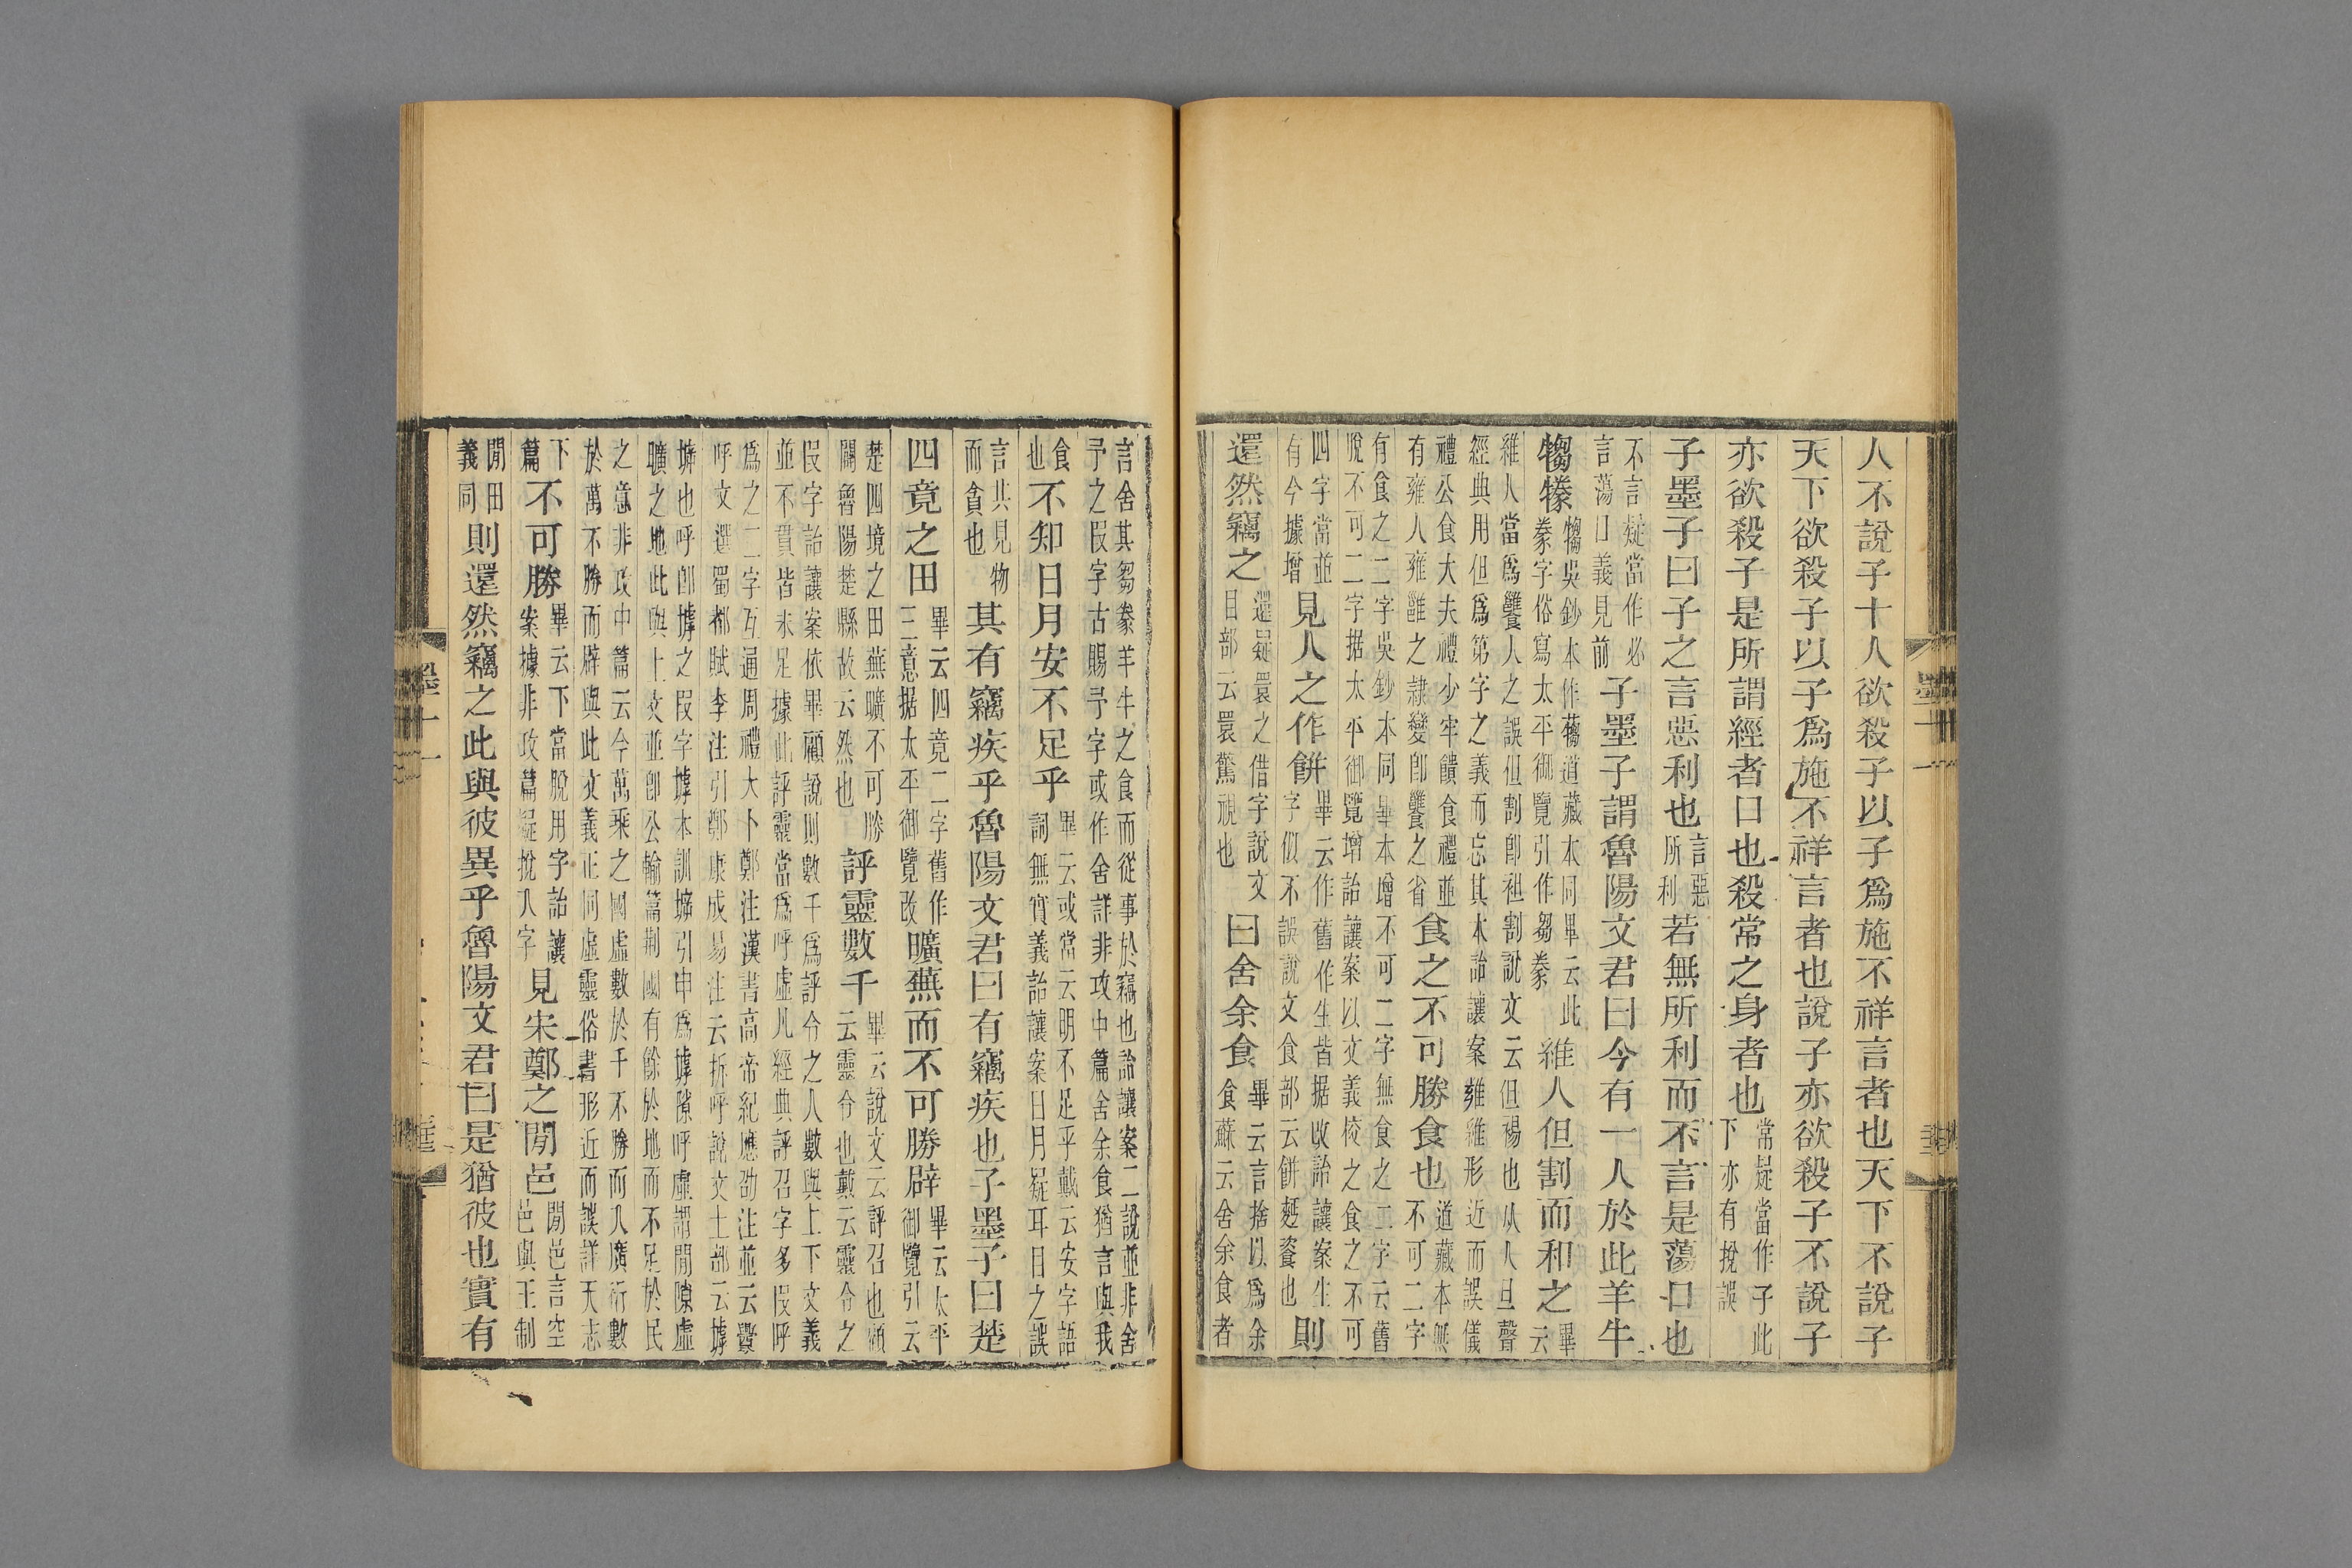 人不說子十人欲殺子以子爲施不祥言者也天下不說子
天下欲殺子以子爲施不祥言者也說子亦欲殺子不說子
亦欲殺子是所謂經者口也殺常之身者也 常疑當作子此
下亦有挩誤
子墨子曰子之言惡利也 言惡
所利 若無所利而不言是蕩口也
不言疑當作必
言蕩口義見前 子墨子謂魯陽文君曰今有一人於此羊牛
犓㹖 犓吳鈔本作㹖道藏本同畢云此
豢字俗寫太平御覽引作芻豢 維人但割而和之 畢
云
維人當爲饔人之誤但割即袒割說文云但裼也从人旦聲
經典用但爲第字之義而忘其本詒讓案雍維形近而誤儀
禮公食大夫禮少牢饋食禮並
有雍人雍雝之隸變即饔之省 食之不可勝食也 道藏本無
不可二字
有食之二字吳鈔本同畢本增不可二字無食之二字云舊
脫不可二字据太平御覽增詒讓案以文義校之食之不可
四字當並
有今據增 見人之作餅 畢云作舊作生皆据改詒讓案生
字似不誤說文食部云餅麪餈也 則
還然竊之 還疑睘之借字說文
目部云睘驚視也 曰舍余食 畢云言捨以爲余
食蘇云舍余食者
言舍其芻豢羊牛之食而從事於竊也詒讓案二說並非舍
予之叚字古賜予字或作舍詳非攻中篇舍余食猶言與我
食
也 不知日月安不足乎 畢云或當云明不足乎戴云安字語
詞無實義詒讓案日月疑耳目之誤
言其見物
而貪也 其有竊疾乎魯陽文君曰有竊疾也子墨子曰楚
四竟之田 畢云四竟二字舊作
三意据太平御覽改 曠蕪而不可勝辟 畢云太平
御覽引云
楚四境之田蕪曠不可勝
闢魯陽楚縣故云然也 評靈數千 畢云說文云評召也顧
云靈令也戴云靈令之
叚字詒讓案依畢顧說則數千爲評令之人數與上下文義
並不貫皆未足據此評靈當爲呼虛凡經典評召字多叚呼
爲之二字互通周禮大卜鄭注漢書高帝紀應劭注並云舋
呼文選蜀都賦李注引鄭康成易注云拆呼說文土部云㙤
㙤也呼即㙤之叚字㙤本訓㙤引申爲㙤隙呼虛謂閒隙虛
曠之地此與上文並即公輸篇荆國有餘於地而不足於民
之意非攻中篇云今萬乘之國虛數於千不勝而入廣衍數
於萬不勝而辟與此文義正同虛靈俗書形近而誤詳天志
下
篇 不可勝 畢云下當脫用字詒讓
案據非攻篇疑挩入字 見宋鄭之閒邑 閒邑言空
邑與王制
閒田
義同 則還然竊之此與彼異乎魯陽文君曰是猶彼也實有